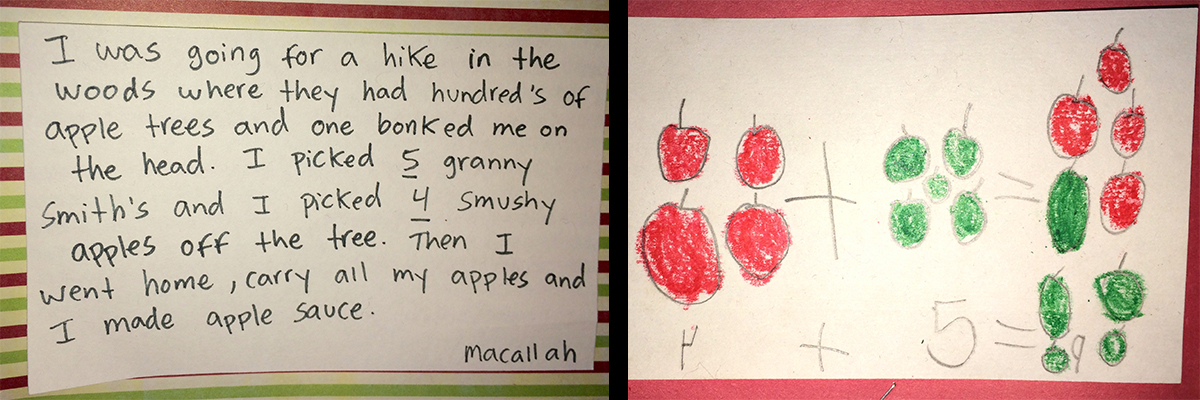 I was going for a hike in the
woods where they had hundred's of
apple trees and one bonked me on
the head. I picked 5 granny
Smith's and I picked 4 Smushy
apples off the tree. Then I
went home, carry all my apples and
I made apple sauce.
macallah
+ =
+ 5 = 9